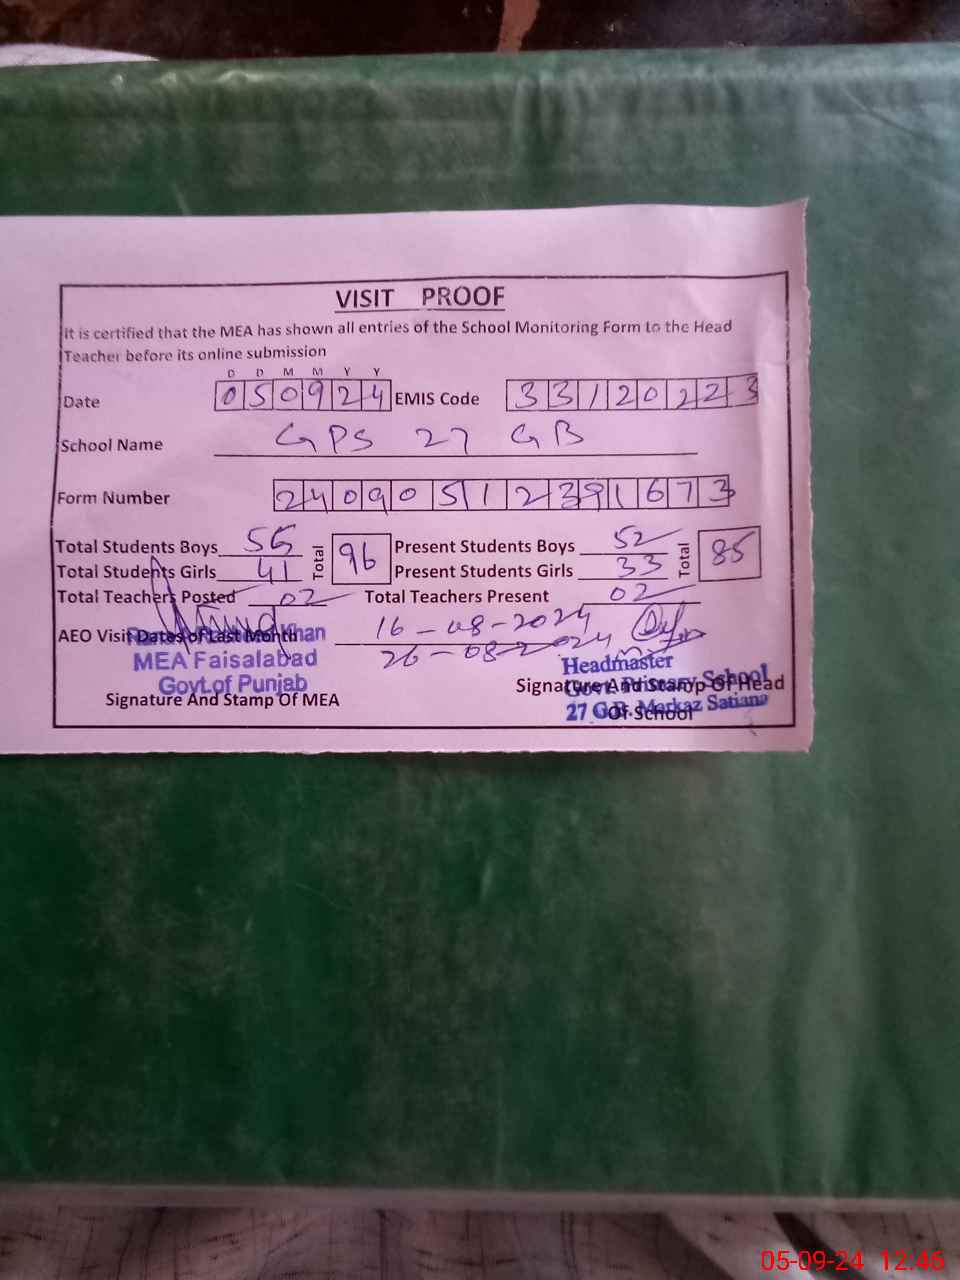 VISIT PROOF
It is certified that the MEA has shown all entries of the School Monitoring Form to the Head
Teacher before its online submission
D D M M Y Y
Date 050924 EMIS Code 33120223
School Name GPS 27 GB
Form Number 24090512391673
Total Students Boys 55 Total 96 Present Students Boys 52 Total 85
Total Students Girls 41 Present Students Girls 33
Total Teachers Posted 02 Total Teachers Present 02
AEO Visit Dates of Last Month 16-08-2024
26-08-2024
Khan
MEA Faisalabad
Govt.of Punjab
Signature And Stamp Of MEA
Headmaster
Govt. Primary School
27 G.B. Markaz Satiana
Signature And Stamp Of Head
Of School
05-09-24 12:46